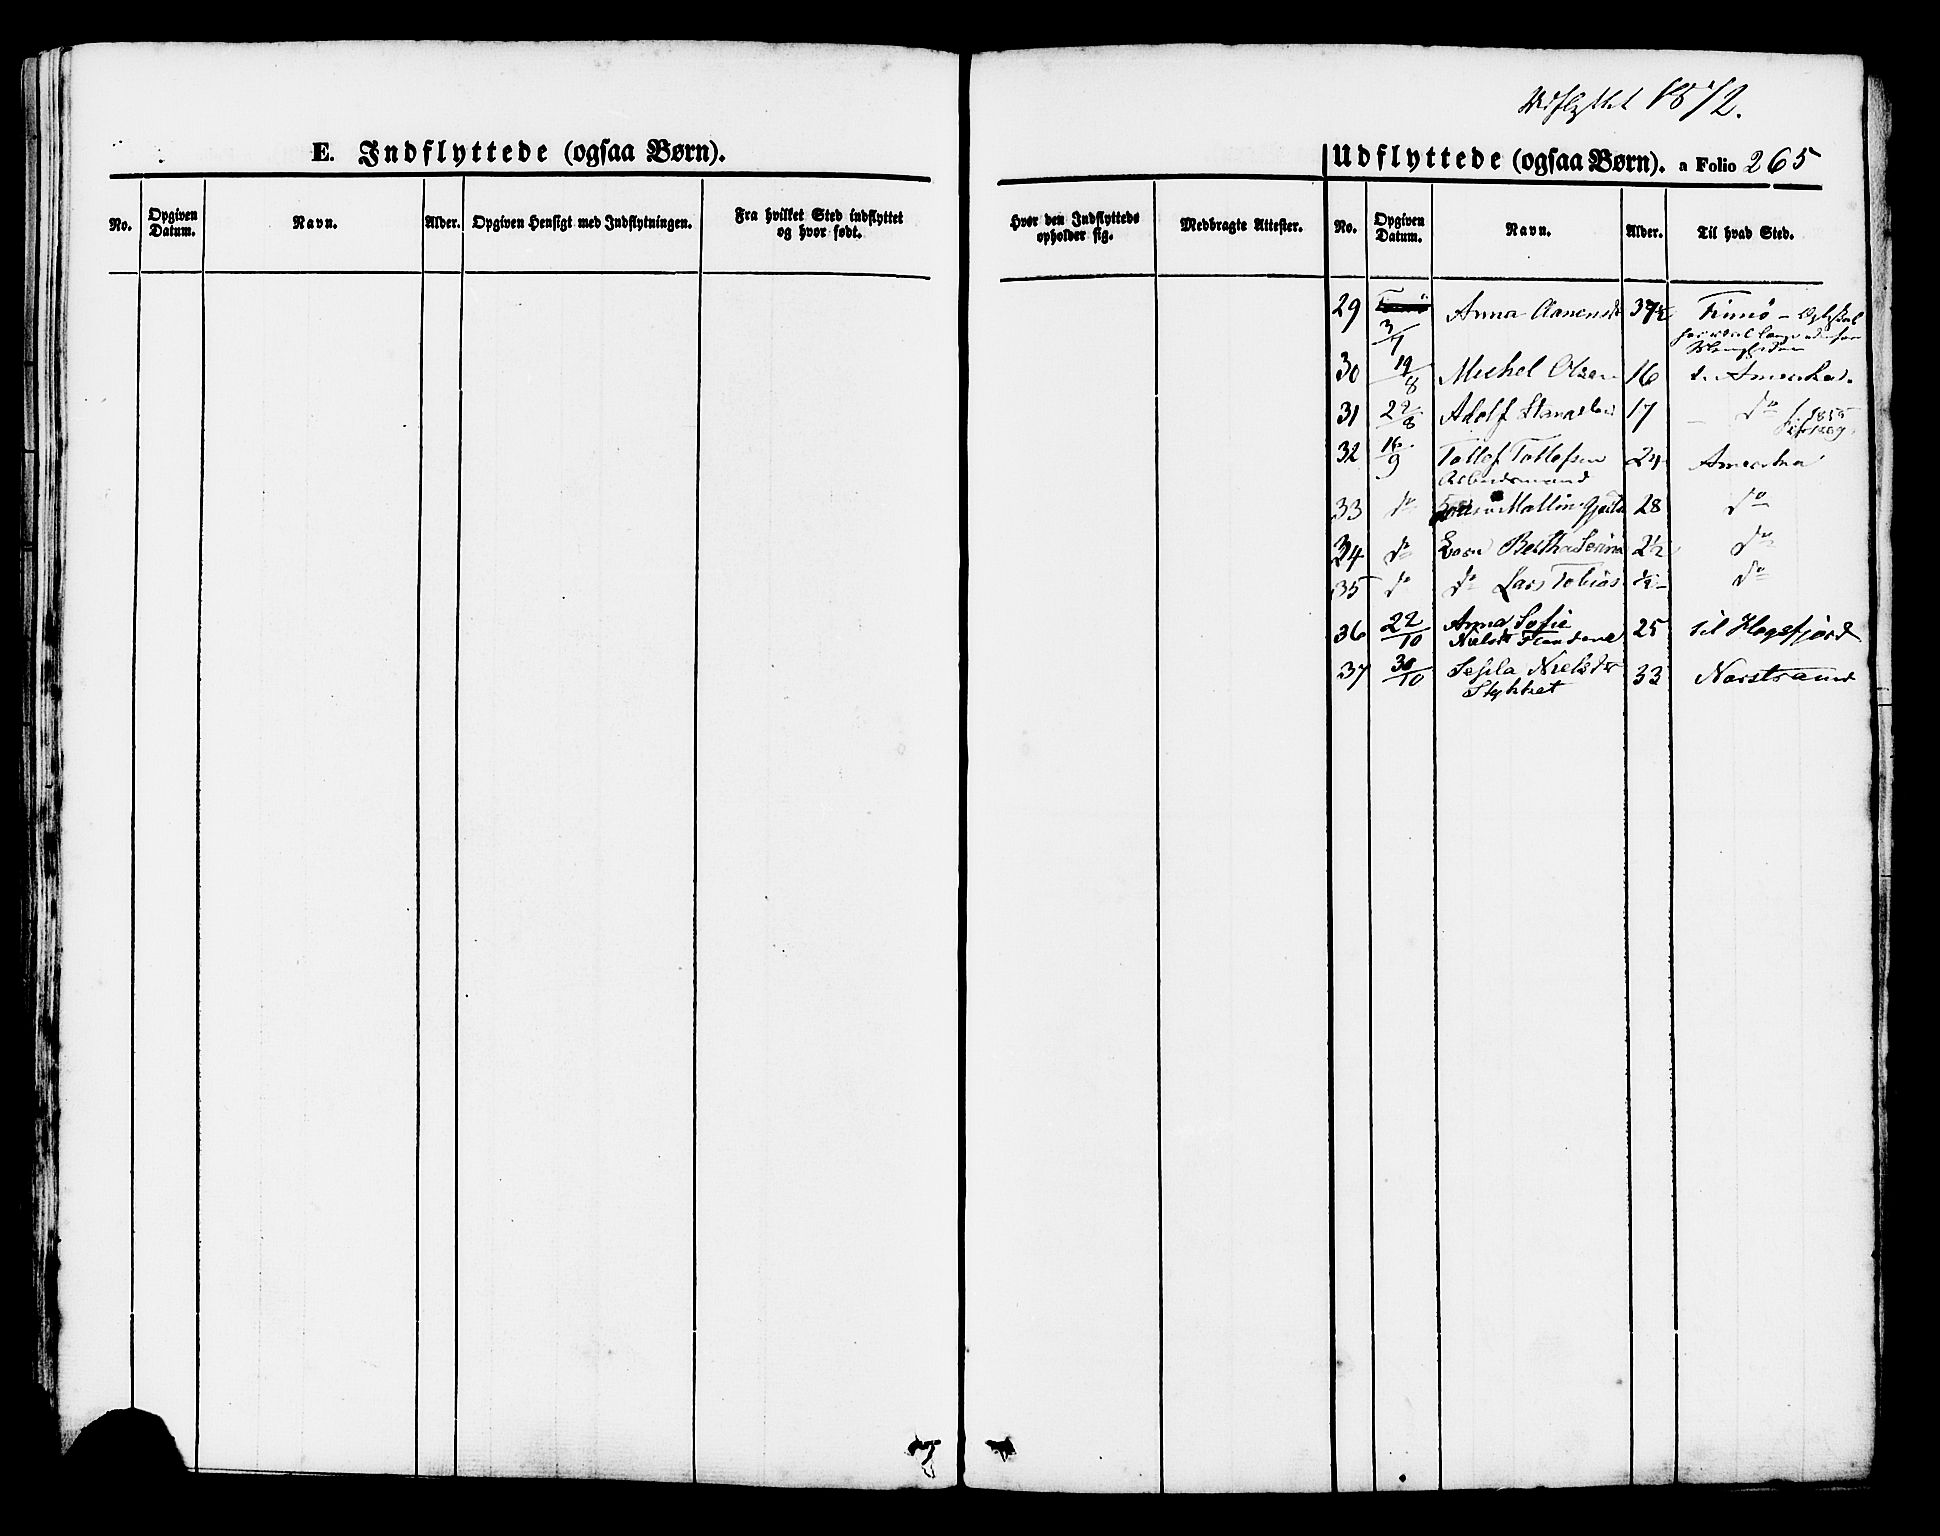 E. Indflyttede (ogsaa Børn).
No.
Opgiven
Datum.
Navn.
Alder.
Opgiven Hensigt med Indflytningen.
Fra hvilket Sted indflyttet
og hvor født.
Udflyttet 1872.
Udflyttede (ogsaa Børn). a Folio 265
Hvor den Indflyttede
opholder sig.
Medbragte Attester.
No.
Opgiven
Datum.
Navn.
Alder.
Til hvad Sted.
29 3/7 Anna Aanensdr Finnö
30 19/8 Michel Olsen 16 Amerika.
31 22/8 Adolf 17 do 1855
32 16/9 Tollef Tollefsen 24 Amerika
Arbeidsmand
33 do Mallin 28 do
34 do Bertha Serina 2½ do
35 do do Lars Tobias ½ do
36 22/10 Anna Sofie 25 til Høgsfjord
Nielsdr
37 30/10 Nielsdr 33 Narstrand
Stykket